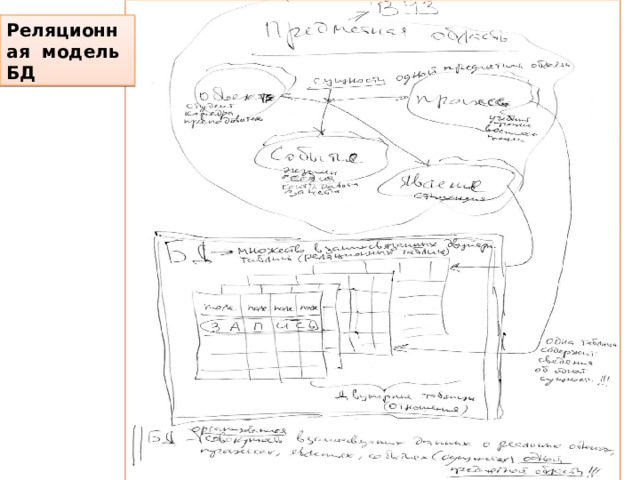 Реляционн
ая модель
БД
ВУЗ
Предметная область
сущности одной предметной области
Объекты
студент
кафедра
преподаватель
процесс
События
экзамен
сессия
зачеты
явление
стипендия
БД → множество взаимосвязанных двумерн.
таблиц (реляционных таблиц)
поле поле поле поле
З А П И С Ь
одна таблица
содержит
сведения
об одной
сущности !!!
Двумерные таблицы
(отношения)
организованная
БД – совокупность взаимосвязанных данных о реальных объектах,
процессах, явлениях, событиях (сущностях) одной
предметной области !!!